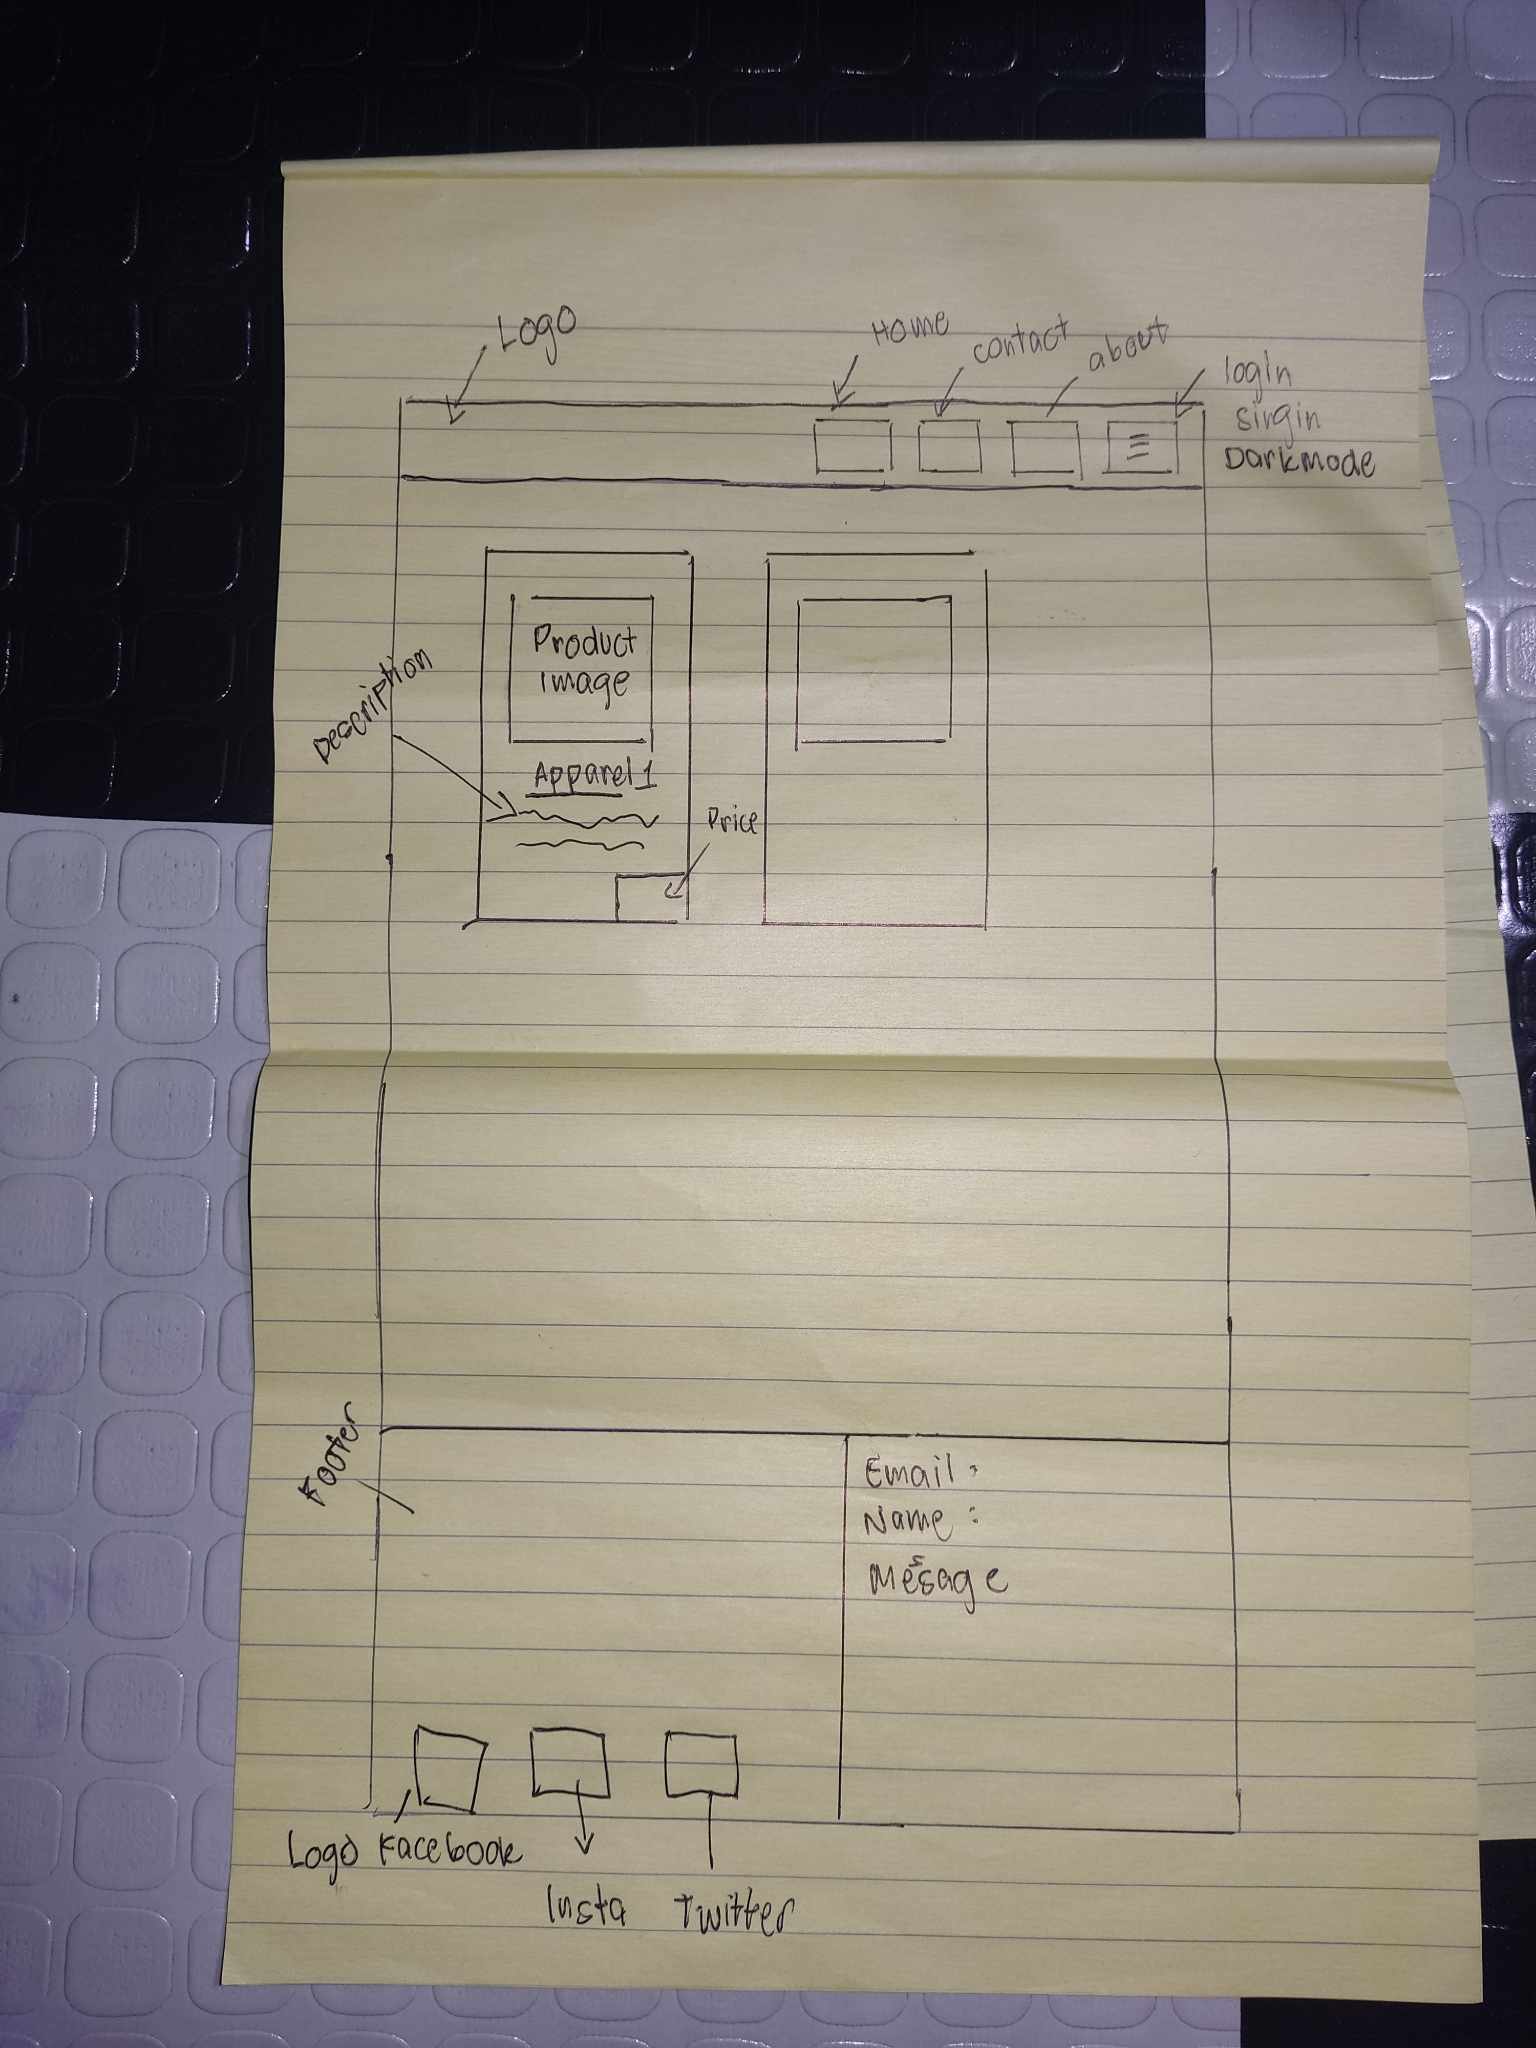 Logo
Home
contact
about
login
sirgin
Darkmode
Product
image
Description
Apparel 1
Price
Footer
Email :
Name :
Message
Logo Facebook
Insta
Twitter